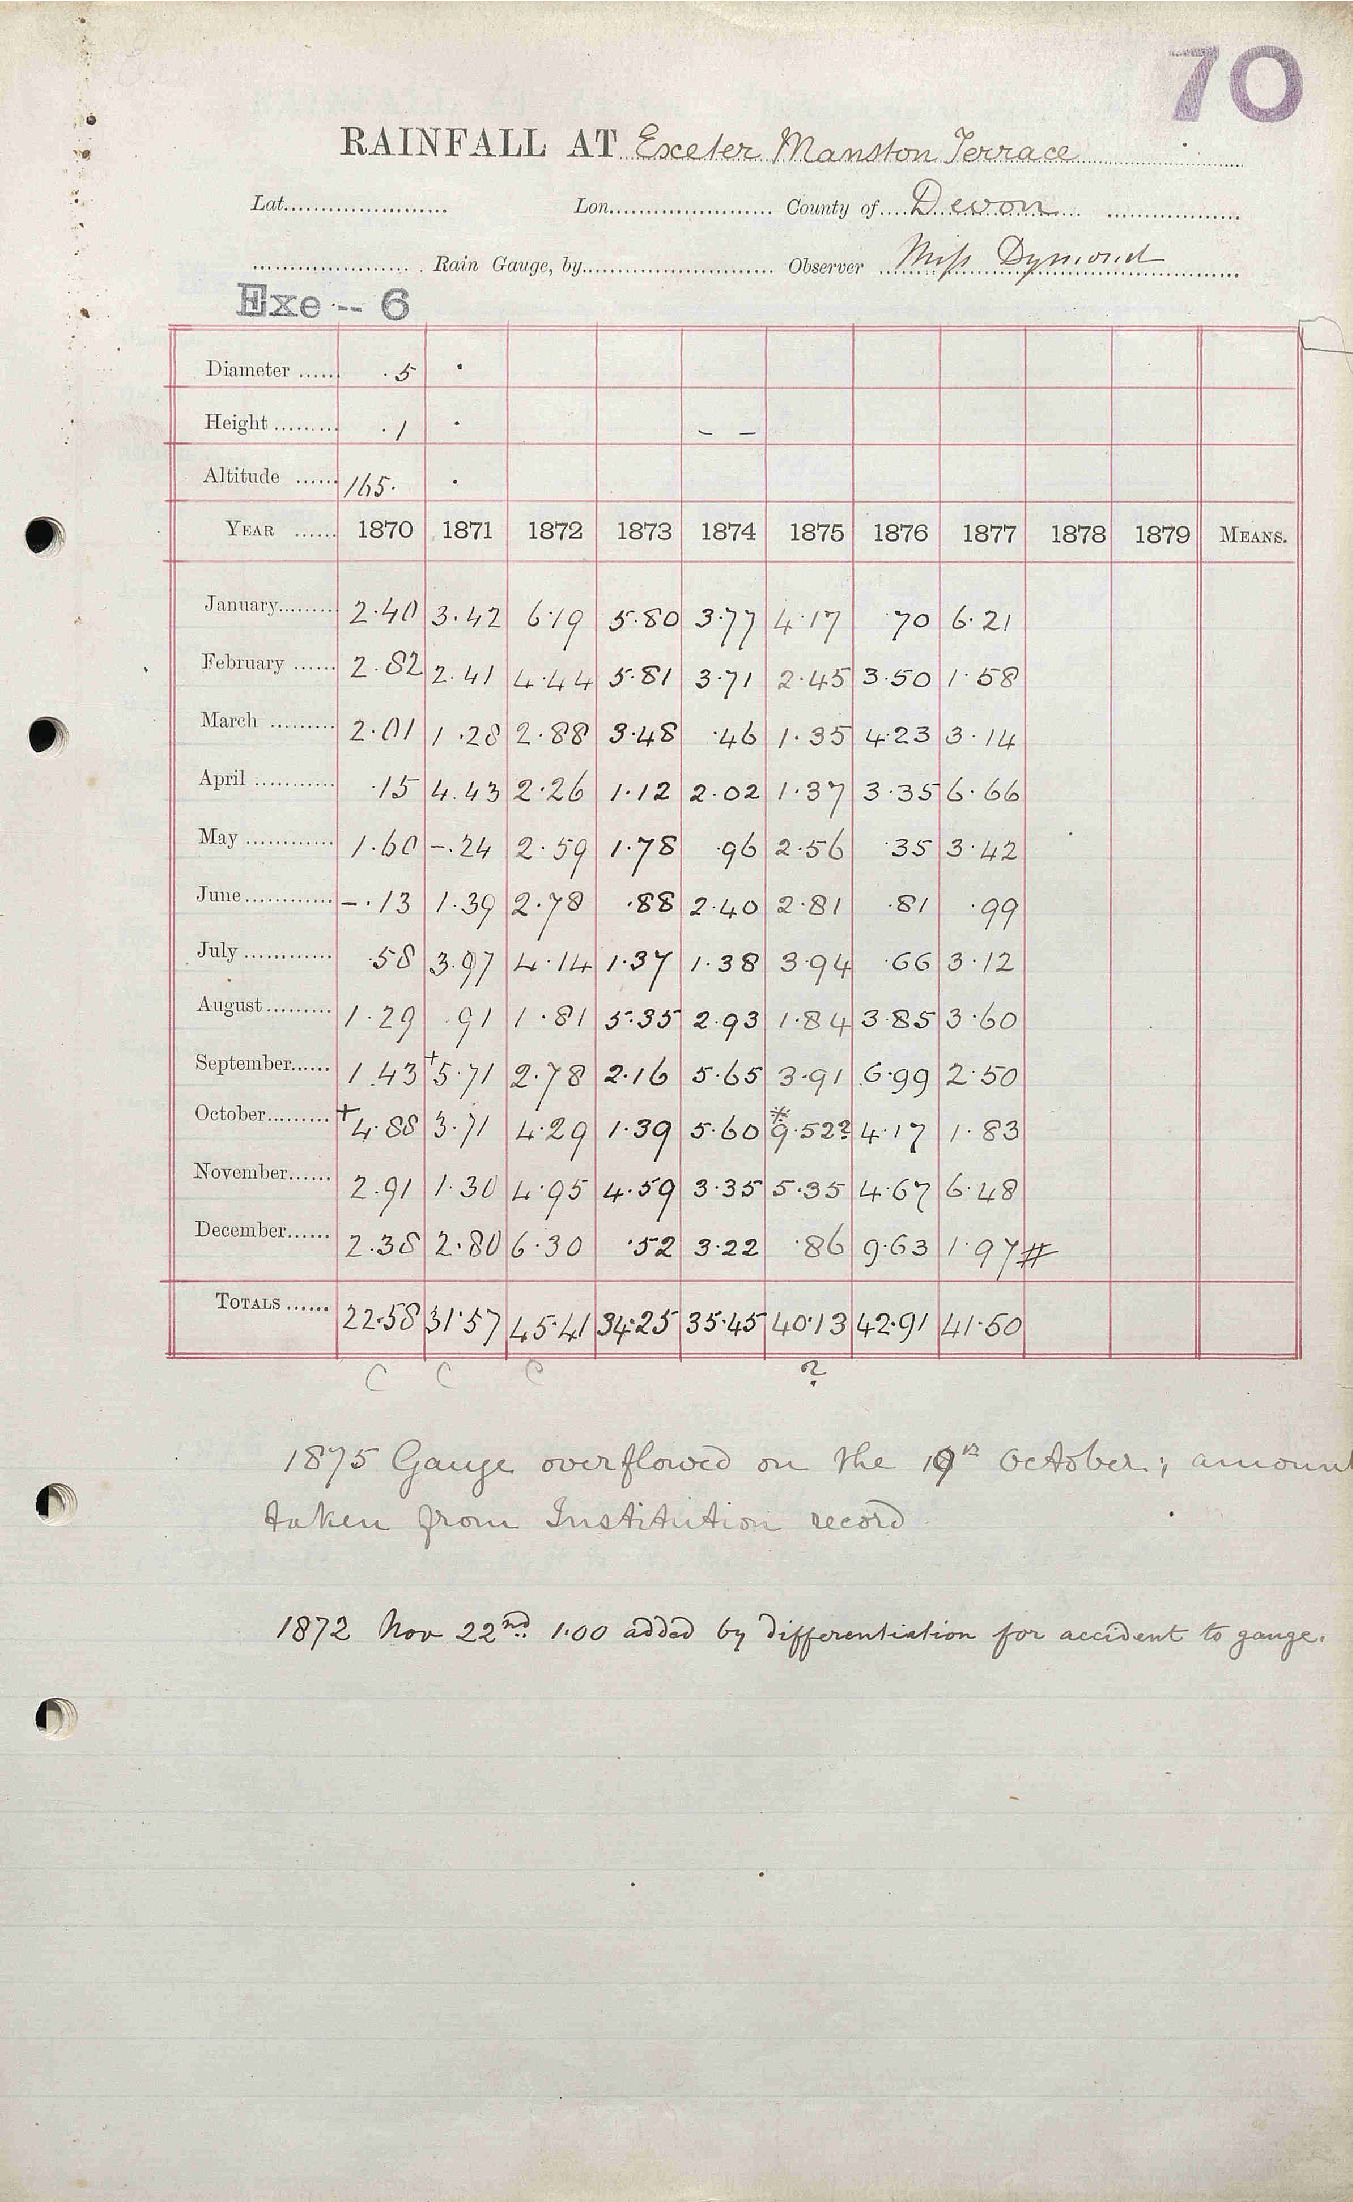 70
RAINFALL AT Exeter Manston Terrace
Lat. Lon. County of Devon
Rain Gauge, by Observer Miss Dymond
Exe -- 6
Diameter ...... .5 .
Height ......... .1 . – –
Altitude ...... 165. .
YEAR ...... 1870 1871 1872 1873 1874 1875 1876 1877 1878 1879 MEANS.
January......... 2.40 3.42 6.19 5.80 3.77 4.17 .70 6.21
February ...... 2.82 2.41 4.44 5.81 3.71 2.45 3.50 1.58
March ......... 2.01 1.28 2.88 3.48 .46 1.35 4.23 3.14
April ............ .15 4.43 2.26 1.12 2.02 1.37 3.35 6.66
May ............ 1.60 -.24 2.59 1.78 .96 2.56 .35 3.42
June............ -.13 1.39 2.78 .88 2.40 2.81 .81 .99
July ............ .58 3.97 4.14 1.37 1.38 3.94 .66 3.12
August......... 1.29 .91 1.81 5.35 2.93 1.84 3.85 3.60
September...... 1.43 +5.71 2.78 2.16 5.65 3.91 6.99 2.50
October......... +4.88 3.71 4.29 1.39 5.60 *9.52? 4.17 1.83
November...... 2.91 1.30 4.95 4.59 3.35 5.35 4.67 6.48
December...... 2.38 2.80 6.30 .52 3.22 .86 9.63 1.97#
TOTALS ...... 22.58 31.57 45.41 34.25 35.45 40.13 42.91 41.50
C C C ?
1875 Gauge overflowed on the 19th October; amount
taken from Institution record
1872 Nov 22nd 1.00 added by differentiation for accident to gauge.